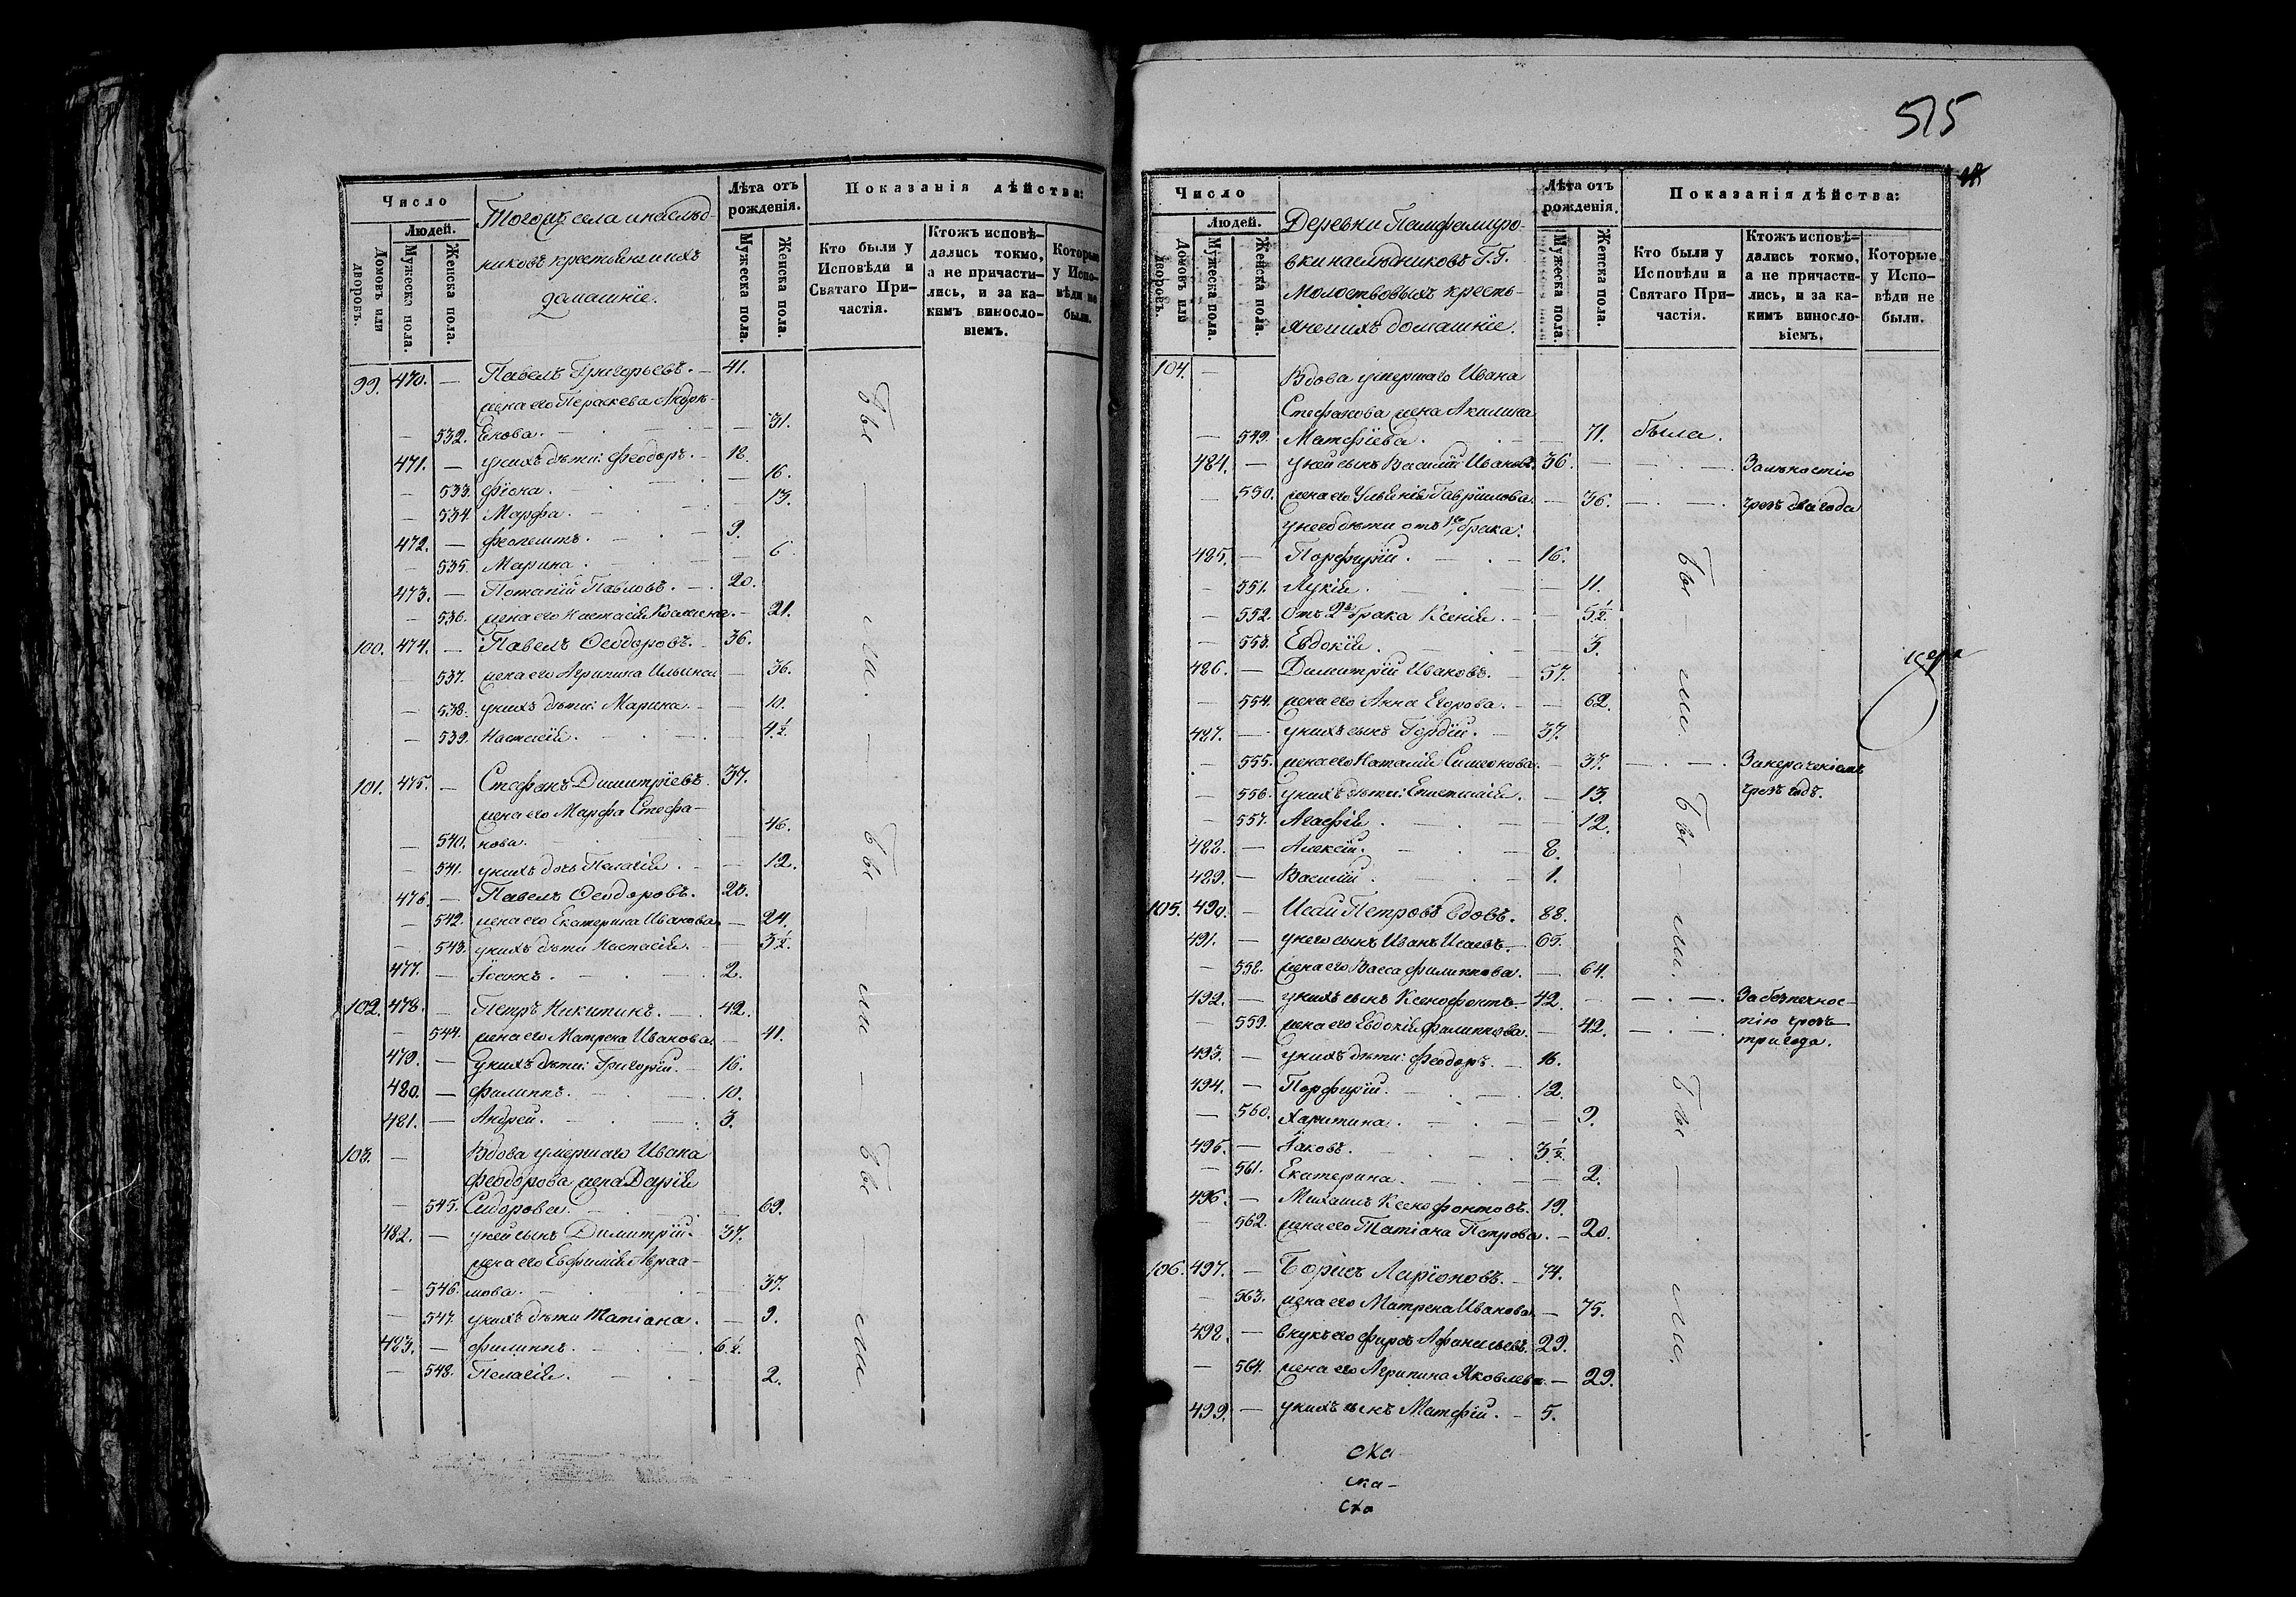 Число
Людей.
Домовъ или дворовъ.
Мужеска пола.
Женска пола.
Тогожъ села и наслѣд-
никовъ крестьяне и ихъ
домашніе.
Лѣта отъ рожденія.
Мужеска пола.
Женска пола.
Показанія дѣйства:
Кто были у Исповѣди и Святаго Причастія.
Ктожъ исповѣдались токмо, а не причастились, и за какимъ винословіемъ.
Которые у Исповѣди не были.
99. 470. — Павелъ Григорьевъ. — 41.
жена его Параскева Андре-
— 532. евова. — 31.
471. — у нихъ дѣти: Феодоръ. — 18.
— 533. Фіона. — 16.
— 534. Марфа. — 13.
472. — Филештъ. — 9.
— 535. Марина. — 6.
473. — Потапій Павловъ. — 20.
— 536. жена его Настасія Козмина. — 21.
100. 474. — Павелъ Ѳеодоровъ. 36.
— 537. жена его Агрипина Ильина — 36.
— 538. у нихъ дѣти: Марина. — 10.
— 539. Настасія. — 4½.
101. 475. — Стефанъ Димитріевъ. 37.
жена его Марфа Стефа-
— 540. нова. — 46.
— 541. у нихъ дочь Пелагія. — 12.
476. — Павелъ Ѳеодоровъ. 28.
— 542. жена его Екатерина Иванова — 24.
— 543. у нихъ дѣти Настасія. — 3½.
477. — Іоаннъ. — 2.
102. 478. — Петръ Никитинъ. — 42.
— 544. жена его Матрена Иванова. — 41.
479. — у нихъ дѣти: Григорій. — 16.
480. — Филиппъ. — 10.
481. — Андрей. — 3.
103. — Вдова умершаго Ивана
Феодорова жена Дарія
— 545. Сидорова. — 69.
482. — у ней сынъ Димитрій. 37.
жена его Евфимія Авраа-
— 546. мова. — 37.
— 547. у нихъ дѣти Татіана. — 9.
483. — Филиппъ. — 6½.
— 548. Пелагія. — 2.
Бы — ли. — Бы — ли — Бы — ли
515
Число
Людей.
Домовъ или дворовъ.
Мужеска пола.
Женска пола.
Деревни Памфамиро-
вки наслѣдниковъ Г.Г.
Молоствовыхъ кресть-
яне и ихъ домашніе.
Лѣта отъ рожденія.
Мужеска пола.
Женска пола.
Показанія дѣйства:
Кто были у Исповѣди и Святаго Причастія.
Ктожъ исповѣдались токмо, а не причастились, и за какимъ винословіемъ.
Которые у Исповѣди не были.
104. — Вдова умершаго Ивана
Стефанова жена Акилина
— 549. Матфіева. — 71. была.
484. — у ней сынъ Василій Ивановъ. 36. — — За лѣностію
— 550. жена его Ульянія Гавриилова — 36. — — чрезъ два года
у него дѣти отъ 1го брака:
485. — Порфирій. — 16.
— 551. Лукія. — 11.
— 552. Отъ 2го брака Ксенія. — 5½.
— 553. Евдокія. — 3.
486. — Димитрій Ивановъ. — 57.
— 554. жена его Анна Егорова. — 62.
487. — у нихъ сынъ Гордій. — 37.
— 555. жена его Наталія Симеонова. — 37. — — За нераченіемъ
— 556. у нихъ дѣти: Епистимія. — 13. чрезъ годъ.
— 557. Агафія. — 12.
488. — Алексій. — 8.
489. — Василій. — 1.
105. 490. — Исай Петровъ вдовъ. 88.
491. — у него сынъ Иванъ Исаевъ. 65.
— 558. жена его Васса Филиппова. — 64.
492. — у нихъ сынъ Ксенофонтъ — 42. — — За безпечнос-
— 559. жена его Евдокія Филиппова. — 42. — — тію чрезъ
три года.
493. — у нихъ дѣти: Феодоръ. — 16.
494. — Порфирій. — 12.
— 560. Харитина. — 9.
495. — Іаковъ. — 3½.
— 561. Екатерина. — 2.
496. — Михаилъ Ксенофонтовъ. 19.
— 562. жена его Татіана Петрова. — 20.
106. 497. — Борисъ Ларіоновъ. — 74.
— 563. жена его Матрена Иванова — 75.
498. — внукъ его Фирсъ Афанасьевъ. 29.
— 564. жена его Агрипина Яковлева. — 29.
499. — у нихъ сынъ Матфій. — 5.
Бы — ли. Бы — ли. Бы — ли.
ска
ска
ска